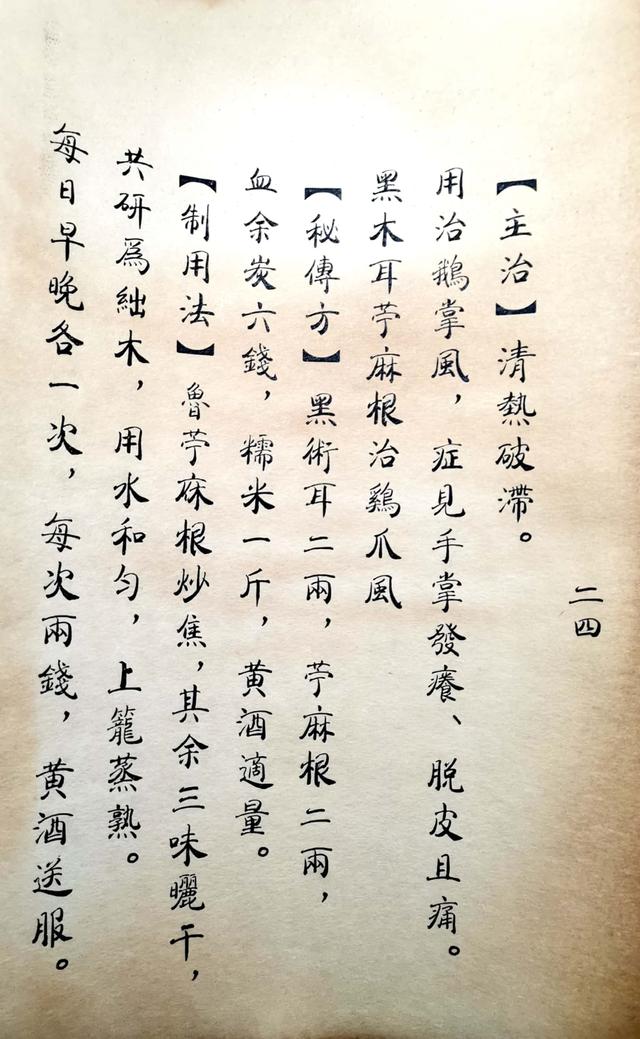 二四
【主治】清熱破滯。
用治鵝掌風，症見手掌發癢、脱皮且痛。
黑木耳苧麻根治鷄爪風
【秘傳方】黑術耳二兩，苧麻根二兩，
血余炭六錢，糯米一斤，黄酒適量。
【制用法】魯苧庥根炒焦，其余三味曬干，
共研爲絀木，用水和匀，上籠蒸熟。
每日早晚各一次，每次兩錢，黄酒送服。